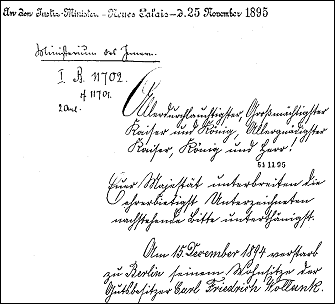 An den Justiz-Minister – Neues Palais – d. 25 November 1895
Ministerium des Innern.
I. A. 11702.
11701.
2 Anl.
Allerdurchlauchtigster, Großmächtigster
Kaiser und König, Allergnädigster
Kaiser, König und Herr!
Euer Majestät unterbreiten die
ehrerbietigst Unterzeichneten
nachstehende Bitte unterthänigst.
Am 15. December 1894 verstarb
zu Berlin seinem Wohnsitze der
Gutsbesitzer Carl Friedrich Wollank.